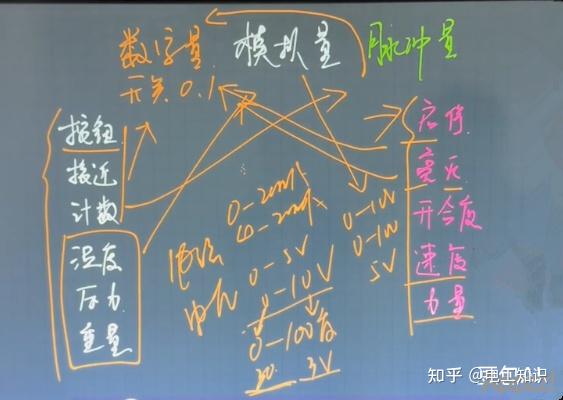 数字量 模拟量 脉冲量
开关 0.1
按钮
接近
计数
温度
压力
重量
启停
亮灭
开合度
速度
力量
0-20mA
4-20mA
0-5V
0-10V
0-100度
3V
0-10V
0-10V
5V
知乎 @电工知识